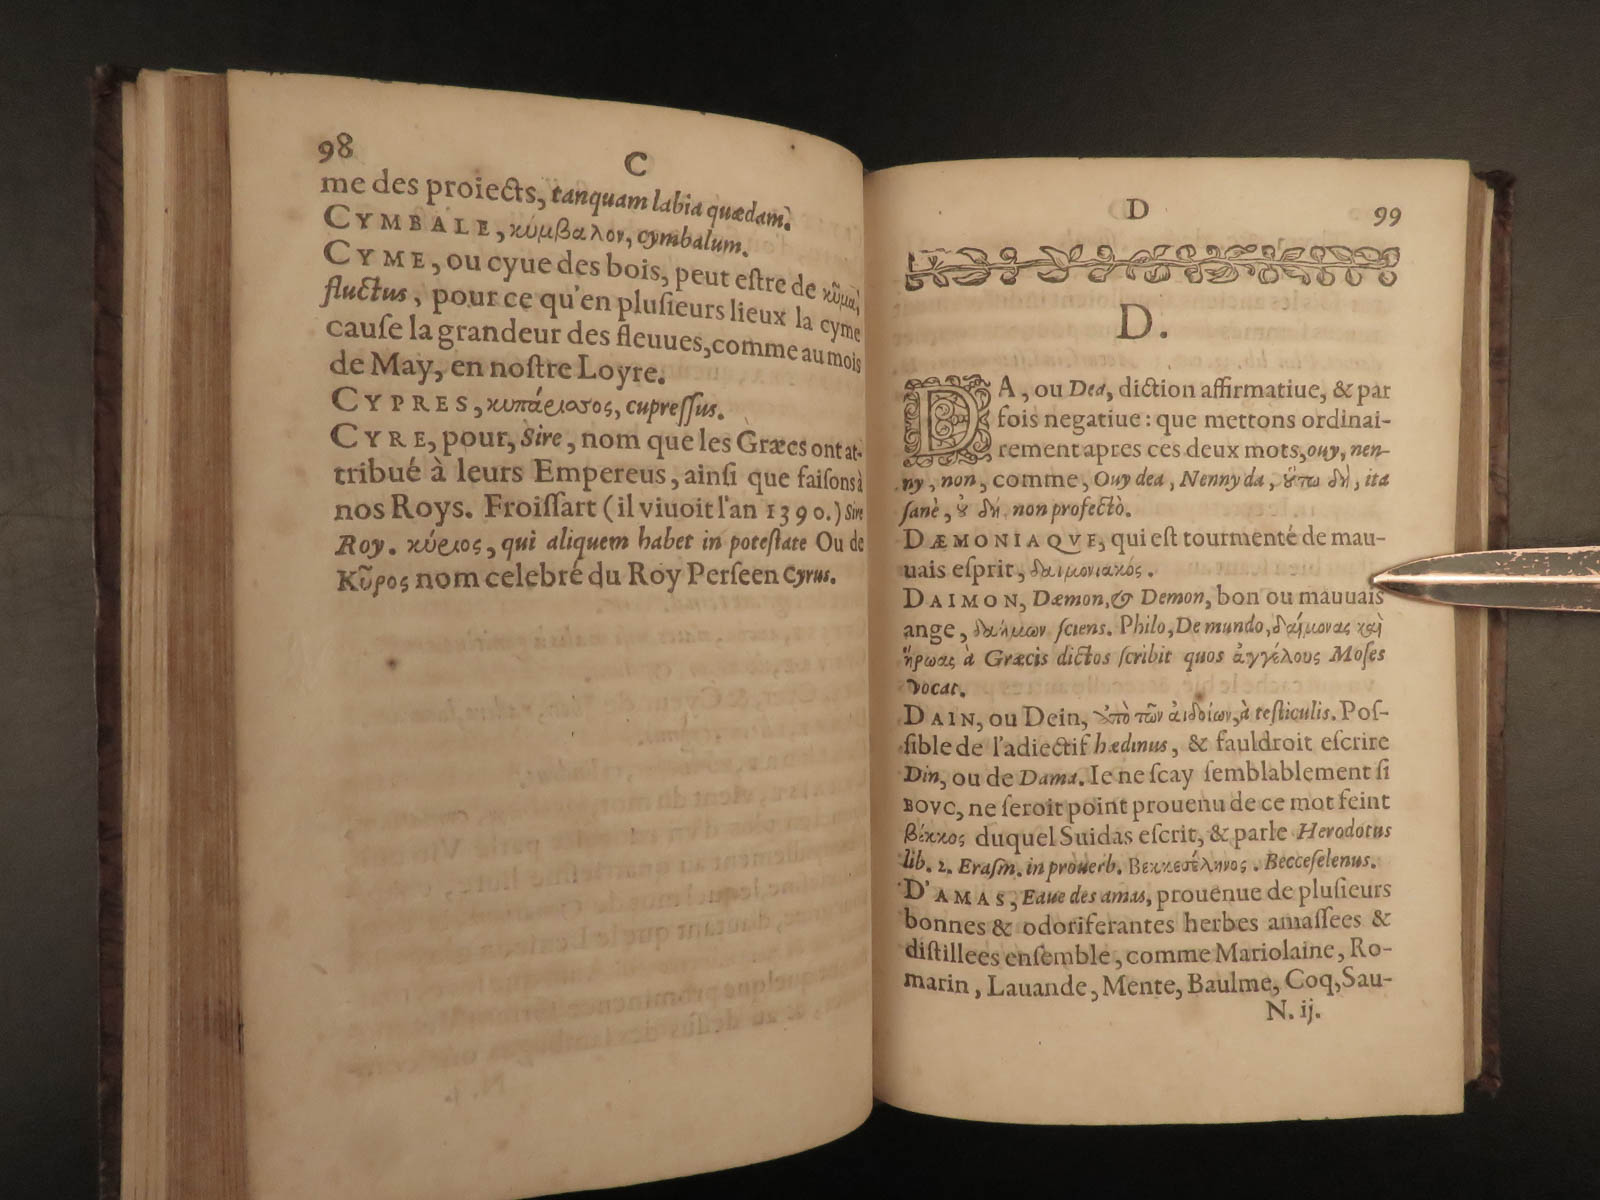 98
C
me des proiects, tanquam labia quædam.
CYMBALE, κύμβαλον, cymbalum.
CYME, ou cyue des bois, peut eſtre de κῦμα,
fluctus, pour ce qu'en pluſieurs lieux la cyme
cauſe la grandeur des fleuues, comme au mois
de May, en noſtre Loyre.
CYPRES, κυπάρισσος, cupreſſus.
CYRE, pour, Sire, nom que les Græcs ont at-
tribué à leurs Empereus, ainſi que faiſons à
nos Roys. Froiſſart (il viuoit l'an 1390.) Sire
Roy. κύριος, qui aliquem habet in poteſtate Ou de
Κῦρος nom celebré du Roy Perſeen Cyrus.
D
99
D.
DA, ou Dea, diction affirmatiue, & par
fois negatiue : que mettons ordinai-
rement apres ces deux mots, ouy, nen-
ny, non, comme, Ouy dea, Nenny da, δή, ita
ſanè, ȣ δή, non profectò.
DÆMONIAQVE, qui est tourmenté de mau-
uais eſprit, δαιμονιακός.
DAIMON, Dæmon, & Demon, bon ou mauuais
ange, δαήμων ſciens. Philo, De mundo, δαίμονας καὶ
ἥρωας à Græcis dictos ſcribit quos ἀγγέλους Moſes
vocat.
DAIN, ou Dein, ὑπὸ τῶν αἰδοίων, à teſticulis. Poſ-
ſible de l'adiectif hædinus, & fauldroit eſcrire
Din, ou de Dama. Ie ne ſcay ſemblablement ſi
BOVC, ne ſeroit point prouenu de ce mot feint
βέκκος duquel Suidas eſcrit, & parle Herodotus
lib. 2. Eraſm. in prouerb. Βεκκεσέληνος. Becceſelenus.
D'AMAS, Eaue des amas, prouenue de pluſieurs
bonnes & odoriferantes herbes amaſſees &
diſtillees enſemble, comme Mariolaine, Ro-
marin, Lauande, Mente, Baulme, Coq, Sau-
N. ij.